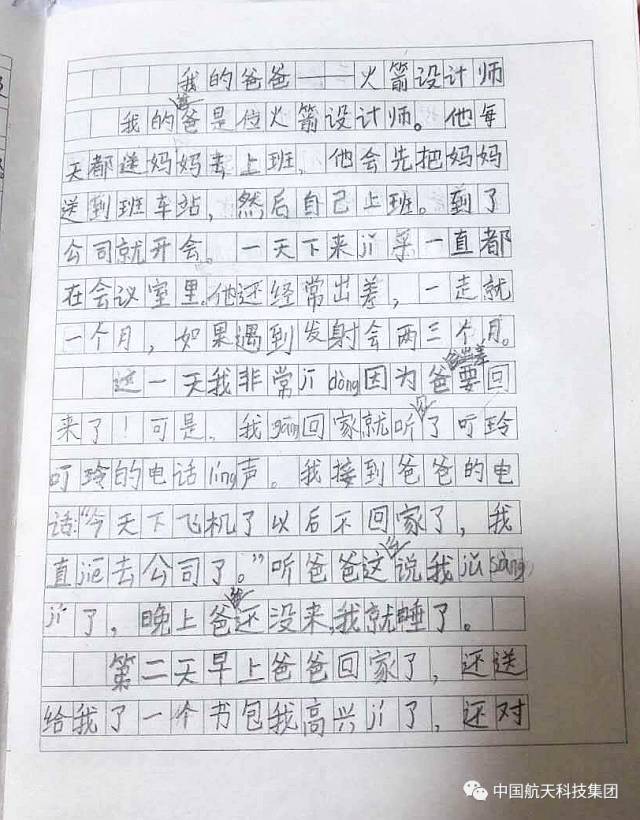 我的爸爸——火箭设计师
我的爸爸是位火箭设计师。他每
天都送妈妈去上班,他会先把妈妈
送到班车站,然后自己上班。到了
公司就开会。一天下来jī乎一直都
在会议室里,他还经常出差,一走就
一个月,如果遇到发射会两三个月。
这一天我非常jī dòng因为爸爸出差要回
来了!可是,我gāng回家就听见了叮玲
叮玲的电话líng声。我接到爸爸的电
话:“今天下飞机了以后不回家了,我
直jiē去公司了。”听爸爸这么说我jǔ sàng
jí了,晚上爸爸还没来,我就睡了。
第二天早上爸爸回家了,还送
给我了一个书包我高兴jí了,还对
中国航天科技集团